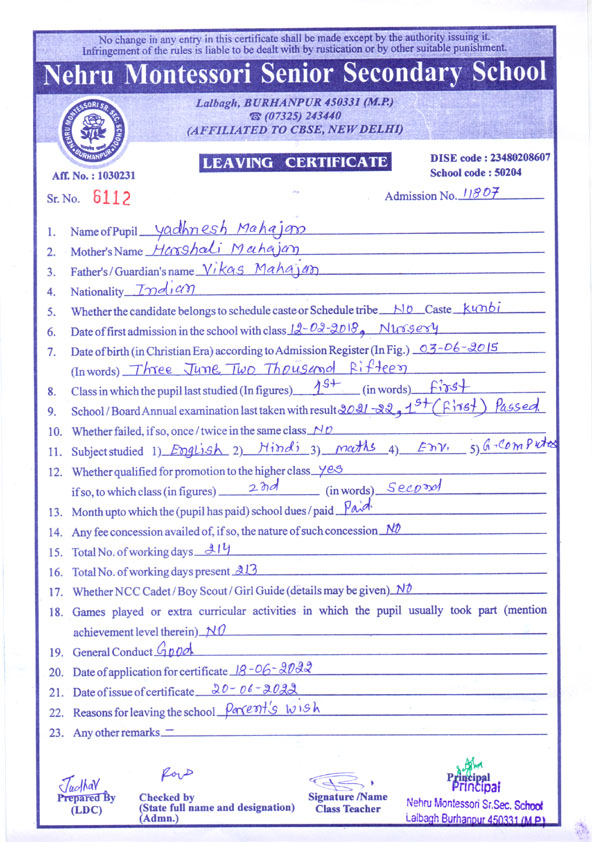 No change in any entry in this certificate shall be made except by the authority issuing it.
Infringement of the rules is liable to be dealt with by rustication or by other suitable punishment.
Nehru Montessori Senior Secondary School
Lalbagh, BURHANPUR 450331 (M.P.)
☎ (07325) 243440
(AFFILIATED TO CBSE, NEW DELHI)
NEHRU MONTESSORI SR. SEC. SCHOOL
BURHANPUR
LEAVING CERTIFICATE
DISE code : 23480208607
School code : 50204
Aff. No. : 1030231
Sr. No. 6112
Admission No. 11807
1. Name of Pupil Yadhnesh Mahajan
2. Mother's Name Harshali Mahajan
3. Father's / Guardian's name Vikas Mahajan
4. Nationality Indian
5. Whether the candidate belongs to schedule caste or Schedule tribe NO Caste kunbi
6. Date of first admission in the school with class 12-02-2018, Nursery
7. Date of birth (in Christian Era) according to Admission Register (In Fig.) 03-06-2015
(In words) Three June Two Thousand Fifteen
8. Class in which the pupil last studied (In figures) 1st (in words) First
9. School / Board Annual examination last taken with result 2021-22, 1st (First) Passed
10. Whether failed, if so, once / twice in the same class NO
11. Subject studied 1) English 2) Hindi 3) maths 4) Env. 5) G-Computer
12. Whether qualified for promotion to the higher class yes
if so, to which class (in figures) 2nd (in words) Second
13. Month upto which the (pupil has paid) school dues / paid Paid
14. Any fee concession availed of, if so, the nature of such concession NO
15. Total No. of working days 214
16. Total No. of working days present 213
17. Whether NCC Cadet / Boy Scout / Girl Guide (details may be given) NO
18. Games played or extra curricular activities in which the pupil usually took part (mention
achievement level therein) NO
19. General Conduct Good
20. Date of application for certificate 18-06-2022
21. Date of issue of certificate 20-06-2022
22. Reasons for leaving the school Parent's wish
23. Any other remarks —
Jadhav
Prepared By
(LDC)
Checked by
(State full name and designation)
(Admn.)
Signature /Name
Class Teacher
Principal
Principal
Nehru Montessori Sr.Sec. School
Lalbagh Burhanpur 450331 (M.P.)